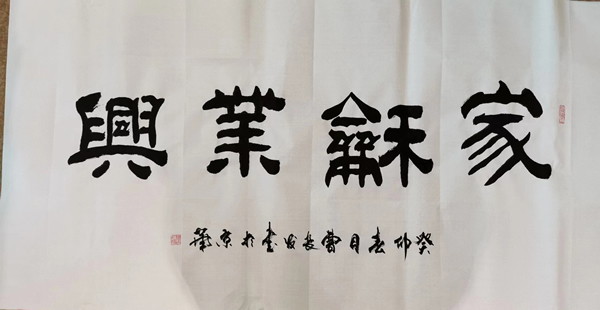 家龢業興
癸卯春月曹長書於京華